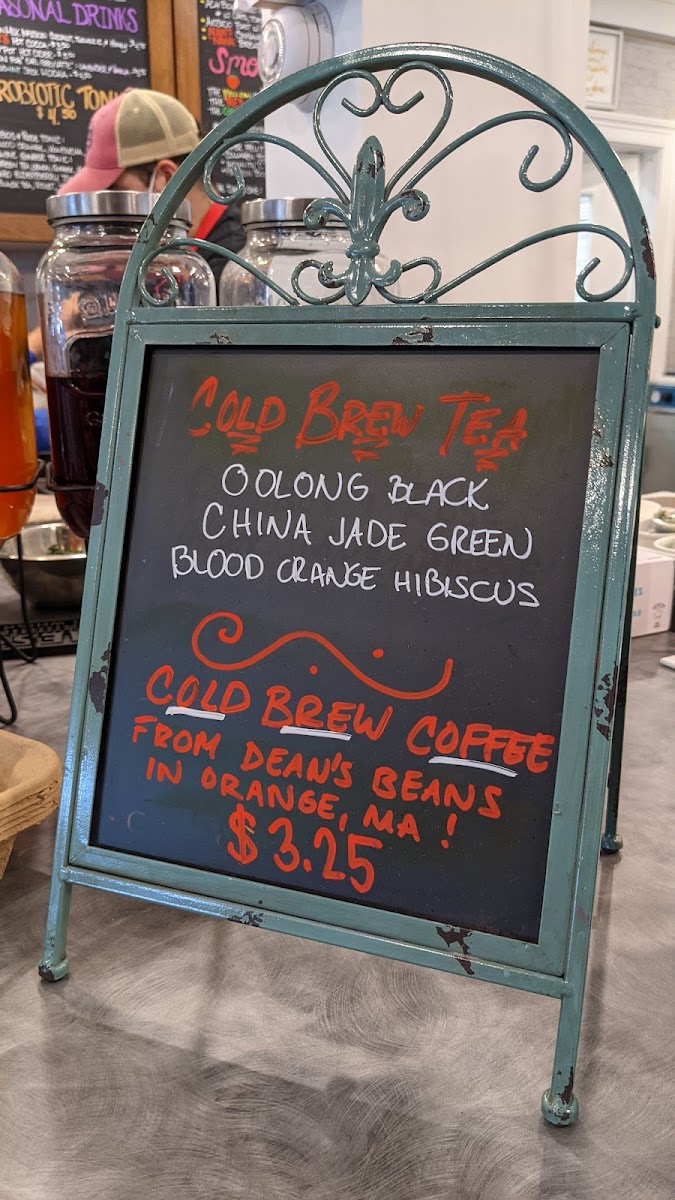 SEASONAL DRINKS
PROBIOTIC TONI
$4.50
SMO
COLD BREW TEA
OOLONG BLACK
CHINA JADE GREEN
BLOOD ORANGE HIBISCUS
COLD BREW COFFEE
FROM DEAN'S BEANS
IN ORANGE, MA !
$3.25